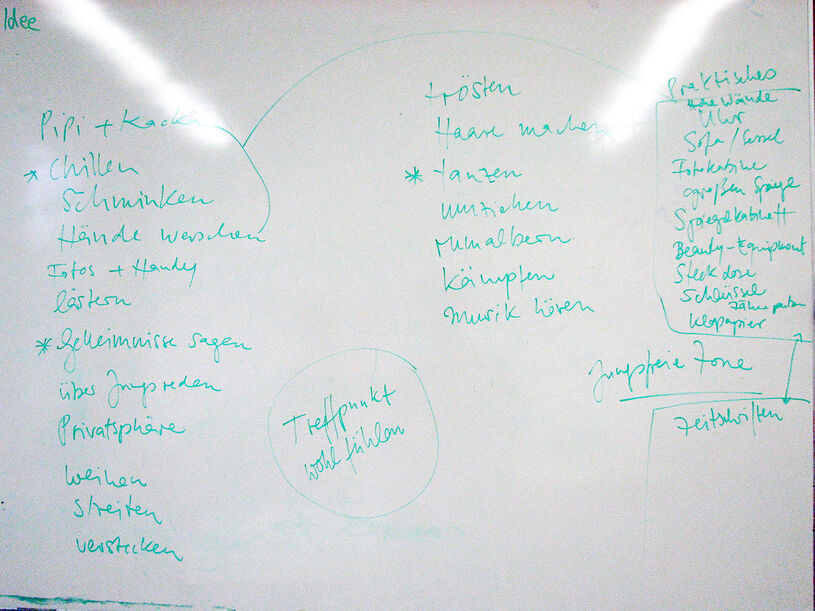 Idee
Pipi + Kacken
Chillen
Schminken
Hände waschen
Fotos + Handy
lästern
* Geheimnisse sagen
über Jungs reden
Privatsphäre
weinen
streiten
verstecken
trösten
Haare machen
* tanzen
umziehen
rumalbern
kämpfen
Musik hören
Treffpunkt
wohlfühlen
Praktisches
hohe Wände
Uhr
Sofa / Sessel
Fotokabine
großen Spiegel
Spiegelkabinett
Beauty-Equipment
Steckdose
Schlüssel
Zähne putzen
Klopapier
Jungsfreie Zone
Zeitschriften